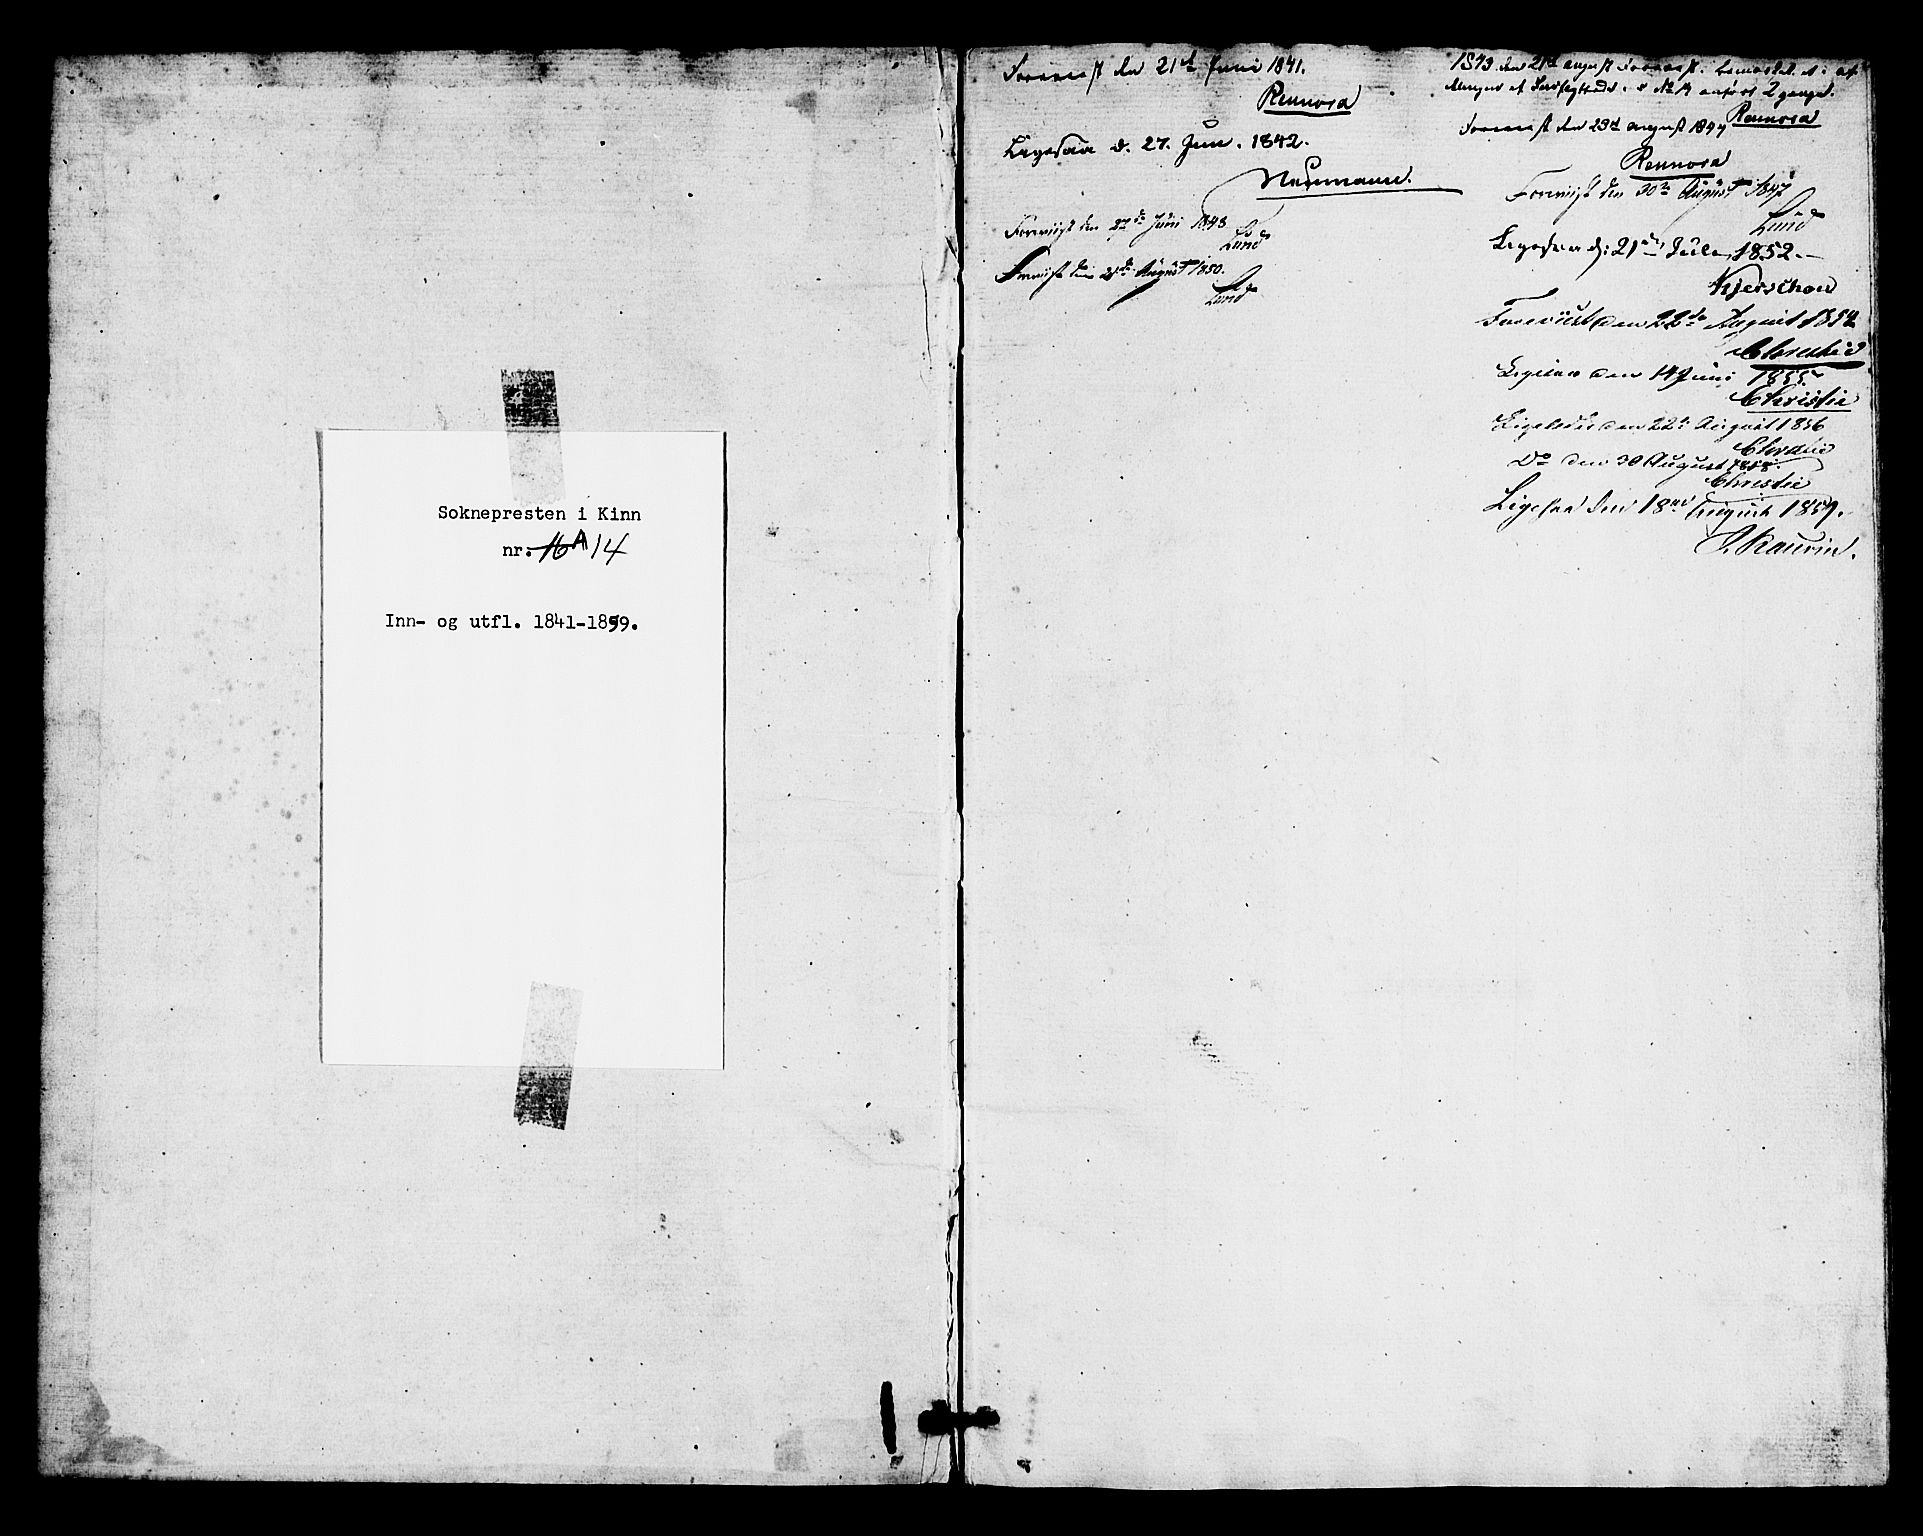 Soknepresten i Kinn
nr. 16A 14
Inn- og utfl. 1841-1859.
Foreviist den 21de Juni 1841.
Rennord
Ligesaa d. 27. Juni. 1842.
Neumann.
Foreviist den 27de Juni 1848
Lund
Foreviist den 21de August 1850.
Lund
1843 den 21de august Foreviist. bemærket at: af
No 14 anført 2 gange.
Rennord
Foreviist den 23de august 1844
Rennord
Foreviist den 30te August 1847
Lund
Ligesaa d: 21de Juli 1852.-
Kjerschow
Foreviist den 22de August 1854
Christie
Ligesaa den 14 Juni 1855
Christie
Ligeledes den 22de August 1856
Christie
Do den 30 August 1858.
Christie
Ligesaa den 18de August 1859.
J. Kaurin.